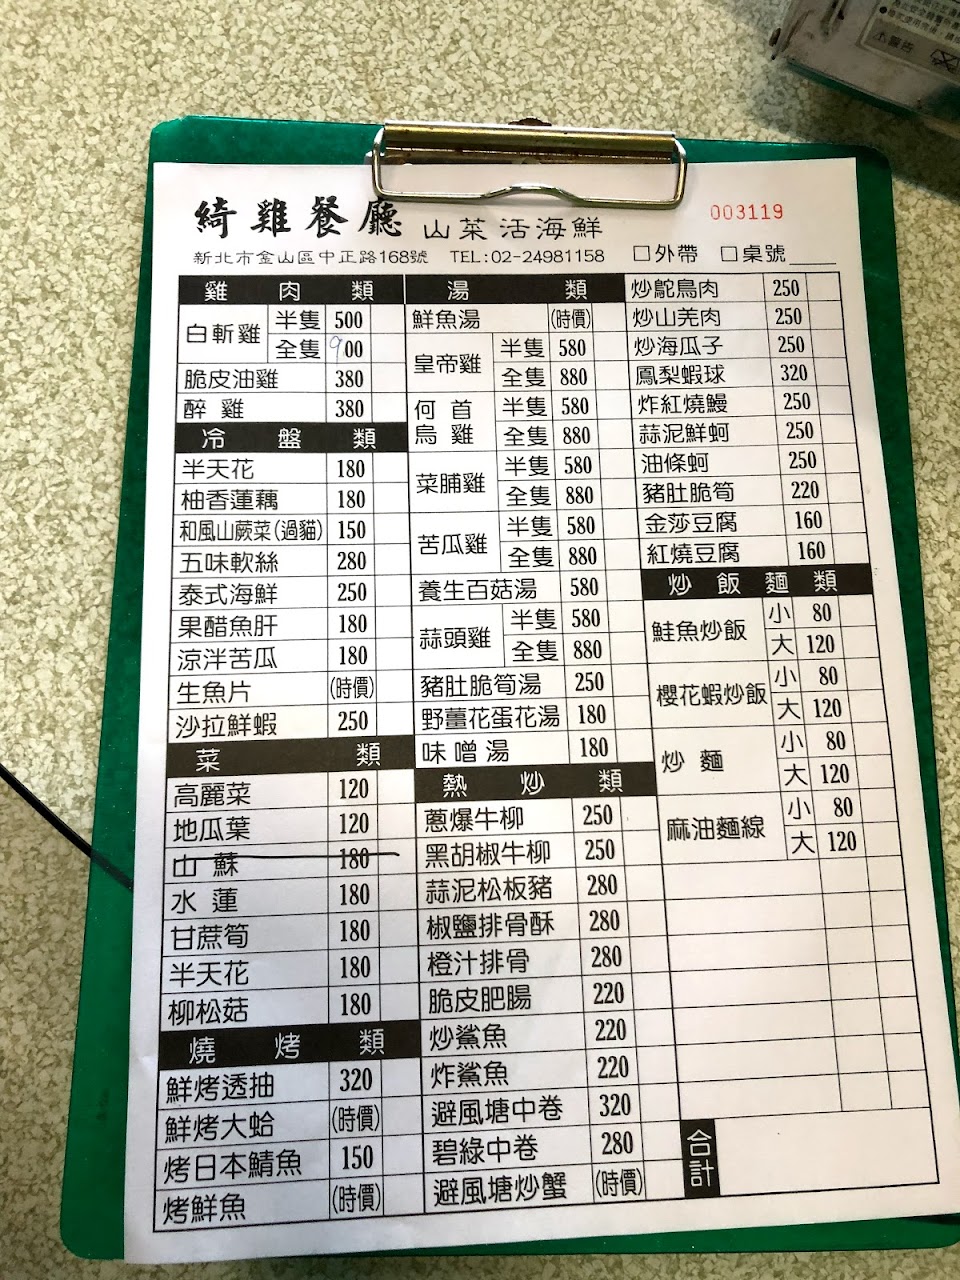 警告
綺雞餐廳 山菜活海鮮
003119
新北市金山區中正路168號 TEL:02-24981158 □外帶 □桌號
雞肉類
白斬雞 半隻 500
全隻 900
脆皮油雞 380
醉雞 380
冷盤類
半天花 180
柚香蓮藕 180
和風山蕨菜(過貓) 150
五味軟絲 280
泰式海鮮 250
果醋魚肝 180
涼泮苦瓜 180
生魚片 (時價)
沙拉鮮蝦 250
菜類
高麗菜 120
地瓜葉 120
山蘇 180
水蓮 180
甘蔗筍 180
半天花 180
柳松菇 180
燒烤類
鮮烤透抽 320
鮮烤大蛤 (時價)
烤日本鯖魚 150
烤鮮魚 (時價)
湯類
鮮魚湯 (時價)
皇帝雞 半隻 580
全隻 880
何首烏雞 半隻 580
全隻 880
菜脯雞 半隻 580
全隻 880
苦瓜雞 半隻 580
全隻 880
養生百菇湯 580
蒜頭雞 半隻 580
全隻 880
豬肚脆筍湯 250
野薑花蛋花湯 180
味噌湯 180
熱炒類
蔥爆牛柳 250
黑胡椒牛柳 250
蒜泥松板豬 280
椒鹽排骨酥 280
橙汁排骨 280
脆皮肥腸 220
炒鯊魚 220
炸鯊魚 220
避風塘中卷 320
碧綠中卷 280
避風塘炒蟹 (時價)
炒鴕鳥肉 250
炒山羌肉 250
炒海瓜子 250
鳳梨蝦球 320
炸紅燒鰻 250
蒜泥鮮蚵 250
油條蚵 250
豬肚脆筍 220
金莎豆腐 160
紅燒豆腐 160
炒飯麵類
鮭魚炒飯 小 80
大 120
櫻花蝦炒飯 小 80
大 120
炒麵 小 80
大 120
麻油麵線 小 80
大 120
合計